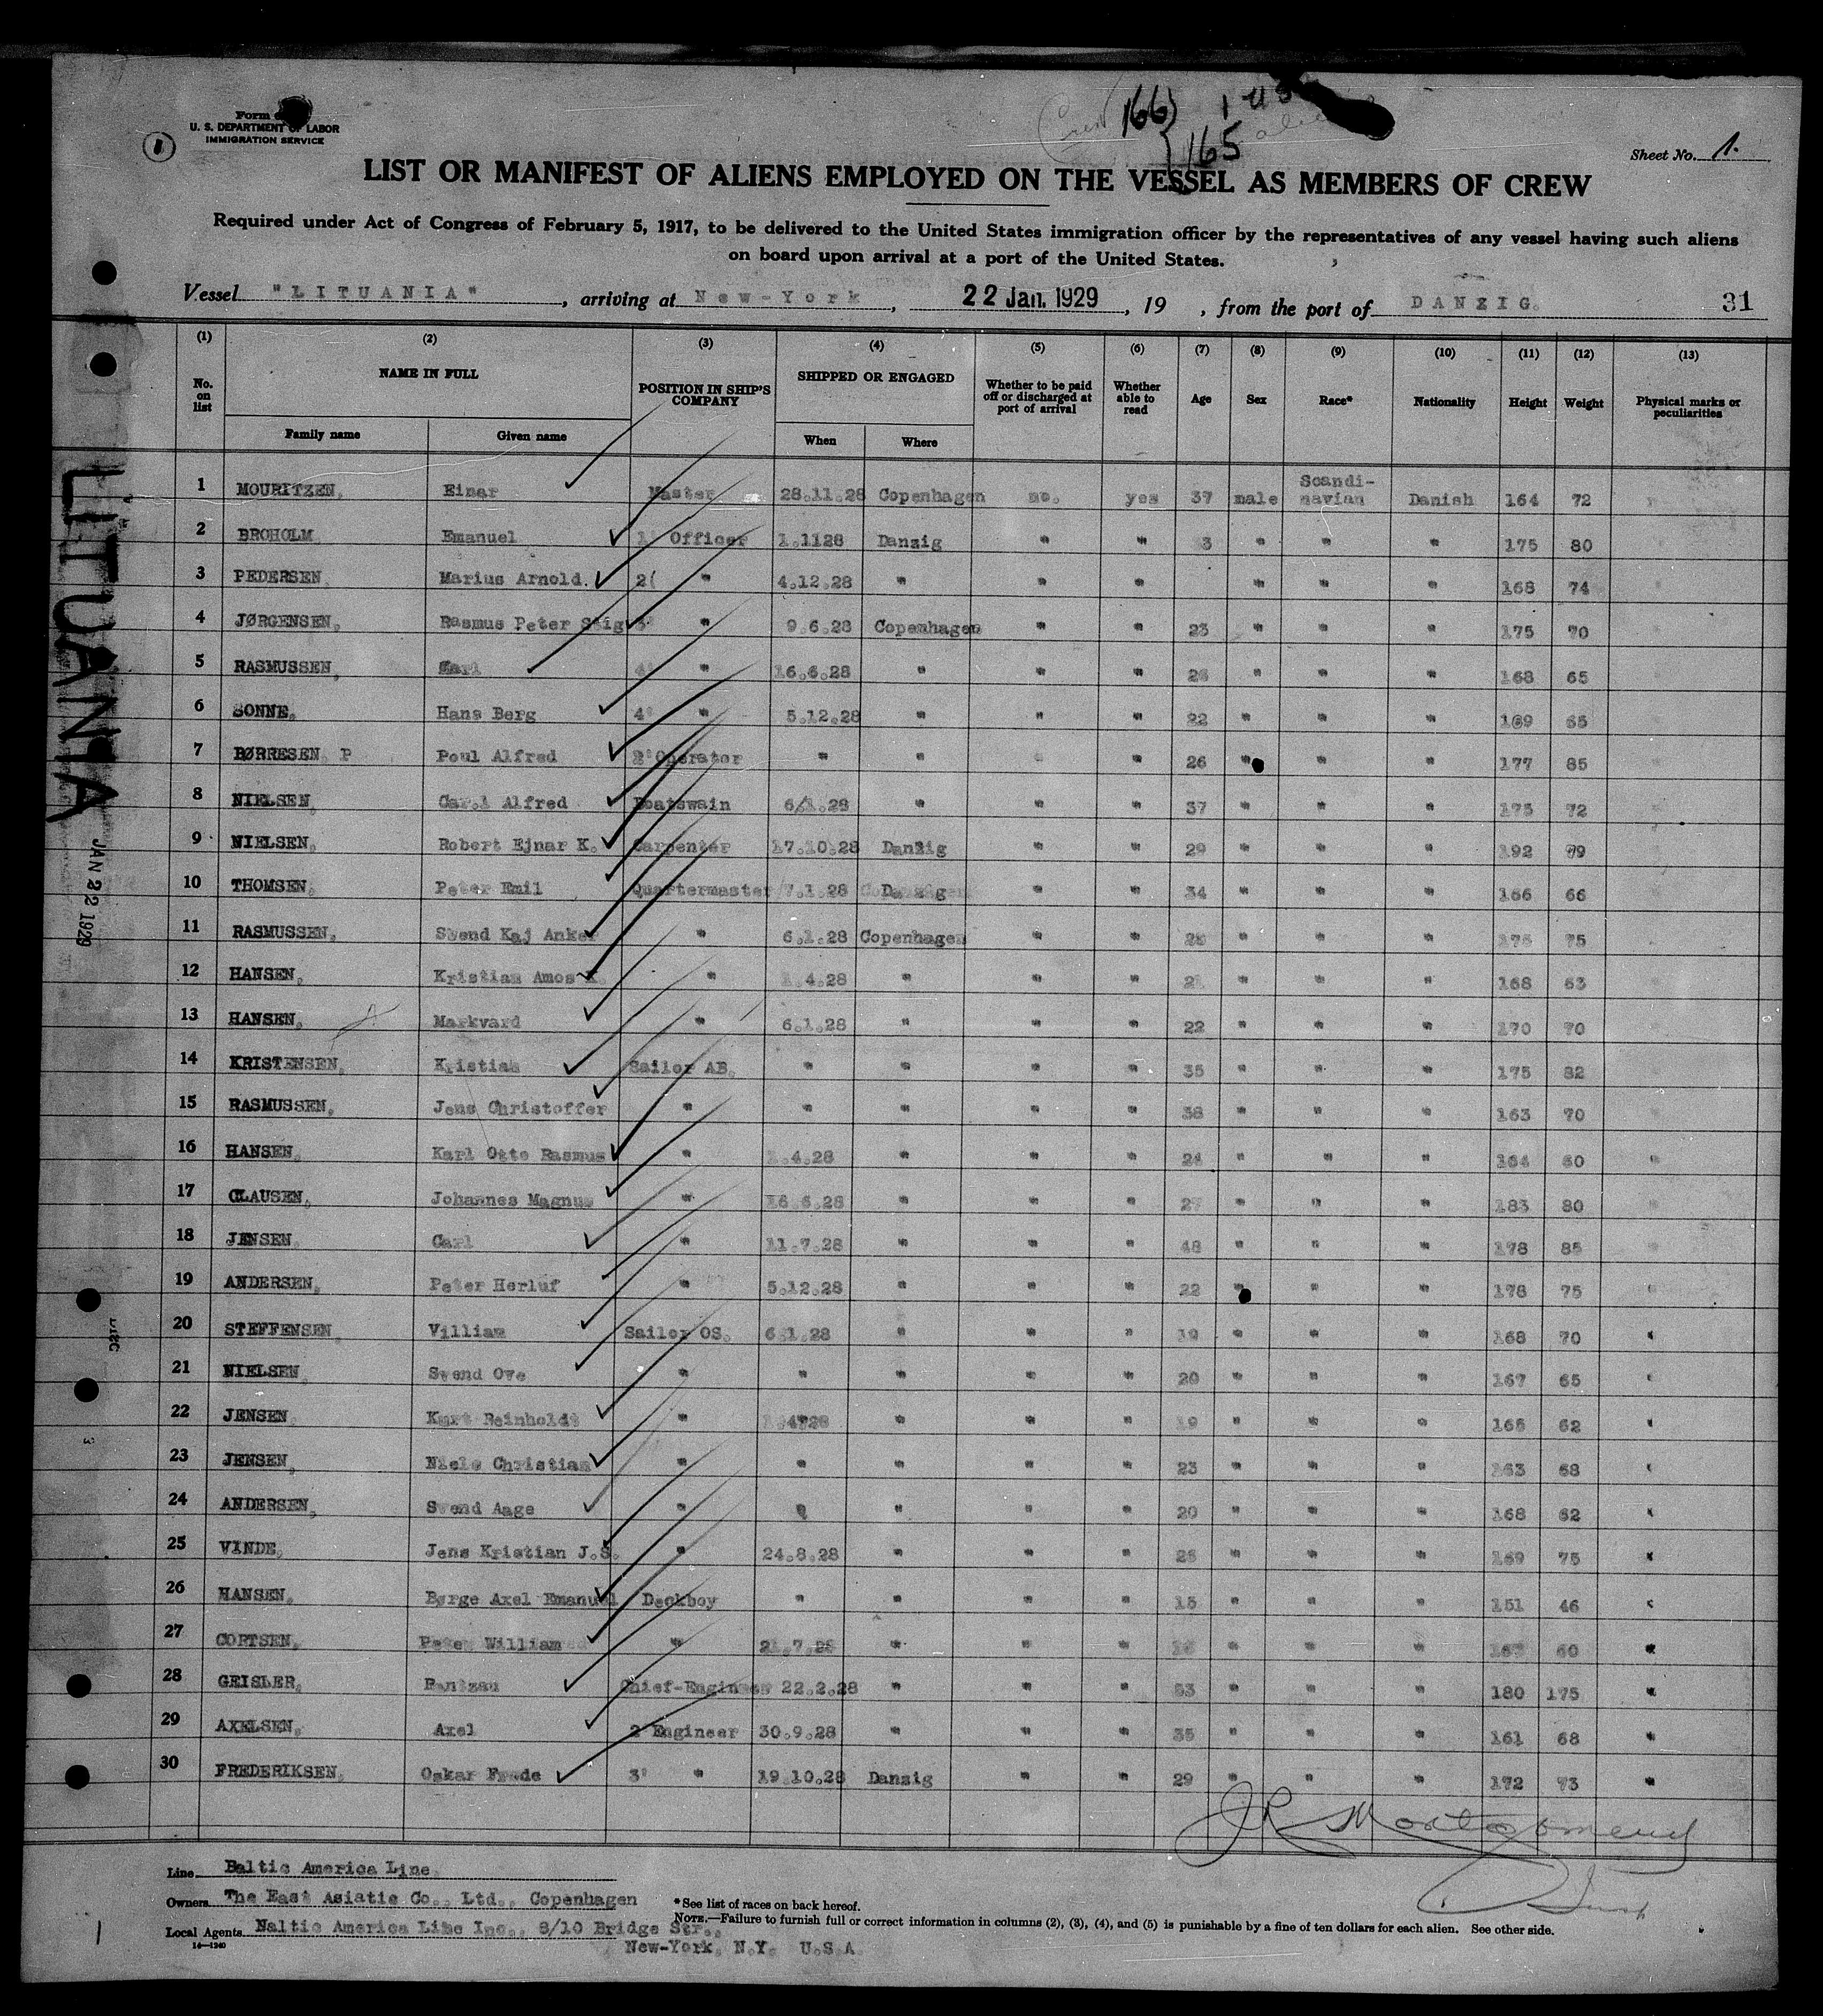 Form
U. S. DEPARTMENT OF LABOR
IMMIGRATION SERVICE
1
Crew 166
165
Sheet No. 1.
LIST OR MANIFEST OF ALIENS EMPLOYED ON THE VESSEL AS MEMBERS OF CREW
Required under Act of Congress of February 5, 1917, to be delivered to the United States immigration officer by the representatives of any vessel having such aliens
on board upon arrival at a port of the United States.
Vessel "LITUANIA", arriving at New-York, 22 Jan. 1929, 19 , from the port of DANZIG. 31
(1) (2) (3) (4) (5) (6) (7) (8) (9) (10) (11) (12) (13)
No. on list NAME IN FULL POSITION IN SHIP'S COMPANY SHIPPED OR ENGAGED Whether to be paid off or discharged at port of arrival Whether able to read Age Sex Race* Nationality Height Weight Physical marks or peculiarities
Family name Given name When Where
1 MOURITZEN, Einar Master 28.11.28 Copenhagen no. yes 37 male Scandi-navian Danish 164 72
2 BROHOLM Emanuel 1' Officer 1.1128 Danzig " " " " " 175 80
3 PEDERSEN Marius Arnold. 2( " 4.12.28 " " " " " " 168 74
4 JØRGENSEN, Rasmus Peter Stig " 9.6.28 Copenhagen " " 23 " " " 175 70
5 RASMUSSEN, 4' " 16.6.28 " " " " " " 168 65
6 SONNE, Hans Berg 4' " 5.12.28 " " " 22 " " " 169 65
7 BØRRESEN P Poul Alfred Operator " " " " 26 " " " 177 85
8 NIELSEN, Carl Alfred Boatswain 6/1.28 " " " 37 " " " 175 72
9 NIELSEN, Robert Ejnar K. Carpenter 17.10.28 Danzig " " 29 " " " 192 79
10 THOMSEN, Peter Emil Quartermaster 7.1.28 " " 34 " " " 166 66
11 RASMUSSEN, Svend Kaj Anker " 6.1.28 Copenhagen " " " " " 175 75
12 HANSEN, Kristian Amos K. " 1.4.28 " " " " " " 168 63
13 HANSEN, Markvard " 6.1.28 " " " 22 " " " 170 70
14 KRISTENSEN, Kristian Sailor AB. " " " " 35 " " " 175 82
15 RASMUSSEN, Jens Christoffer " " " " " 38 " " " 163 70
16 HANSEN, Karl Otto Rasmus " 1.4.28 " " " 24 " " " 164 60 "
17 CLAUSEN, Johannes Magnus " 16.6.28 " " " 27 " " " 183 80
18 JENSEN, Carl " 11.7.28 " " " 48 " " " 178 85
19 ANDERSEN, Peter Herluf " 5.12.28 " " " 22 " " " 178 75
20 STEFFENSEN, Villiam Sailor OS. 6.1.28 " " " 19 " " " 168 70 "
21 NIELSEN, Svend Ove " " " " " 20 " " " 167 65 "
22 JENSEN, Kurt Reinholdt " " " " 19 " " " 62 "
23 JENSEN, Niels Christian " " " " " 23 " " " 163 68 "
24 ANDERSEN, Svend Aage " " " " " 20 " " " 168 62 "
25 VINDE, Jens Kristian J.S. " 24.8.28 " " " 26 " " " 169 75 "
26 HANSEN, Børge Axel Emanuel Deckboy " " " " 15 " " " 151 46 "
27 CORTSEN, Peter William " 21.7.28 " " " " " " 60 "
28 GEISLER, Rantzau Chief-Engineer 22.2.28 " " " 53 " " " 180 175 "
29 AXELSEN, Axel 2 Engineer 30.9.28 " " " 35 " " " 161 68 "
30 FREDERIKSEN, Oskar Frede 3' " 19.10.28 Danzig " " 29 " " " 172 73 "
J R Montgomery
Line Baltic America Line,
Owners The East Asiatic Co., Ltd., Copenhagen
*See list of races on back hereof.
Local Agents Naltic America Line Inc., 8/10 Bridge Str.,
NOTE.—Failure to furnish full or correct information in columns (2), (3), (4), and (5) is punishable by a fine of ten dollars for each alien. See other side.
14—1240
New-York, N.Y. U.S.A.
LITUANIA
JAN 22 1929